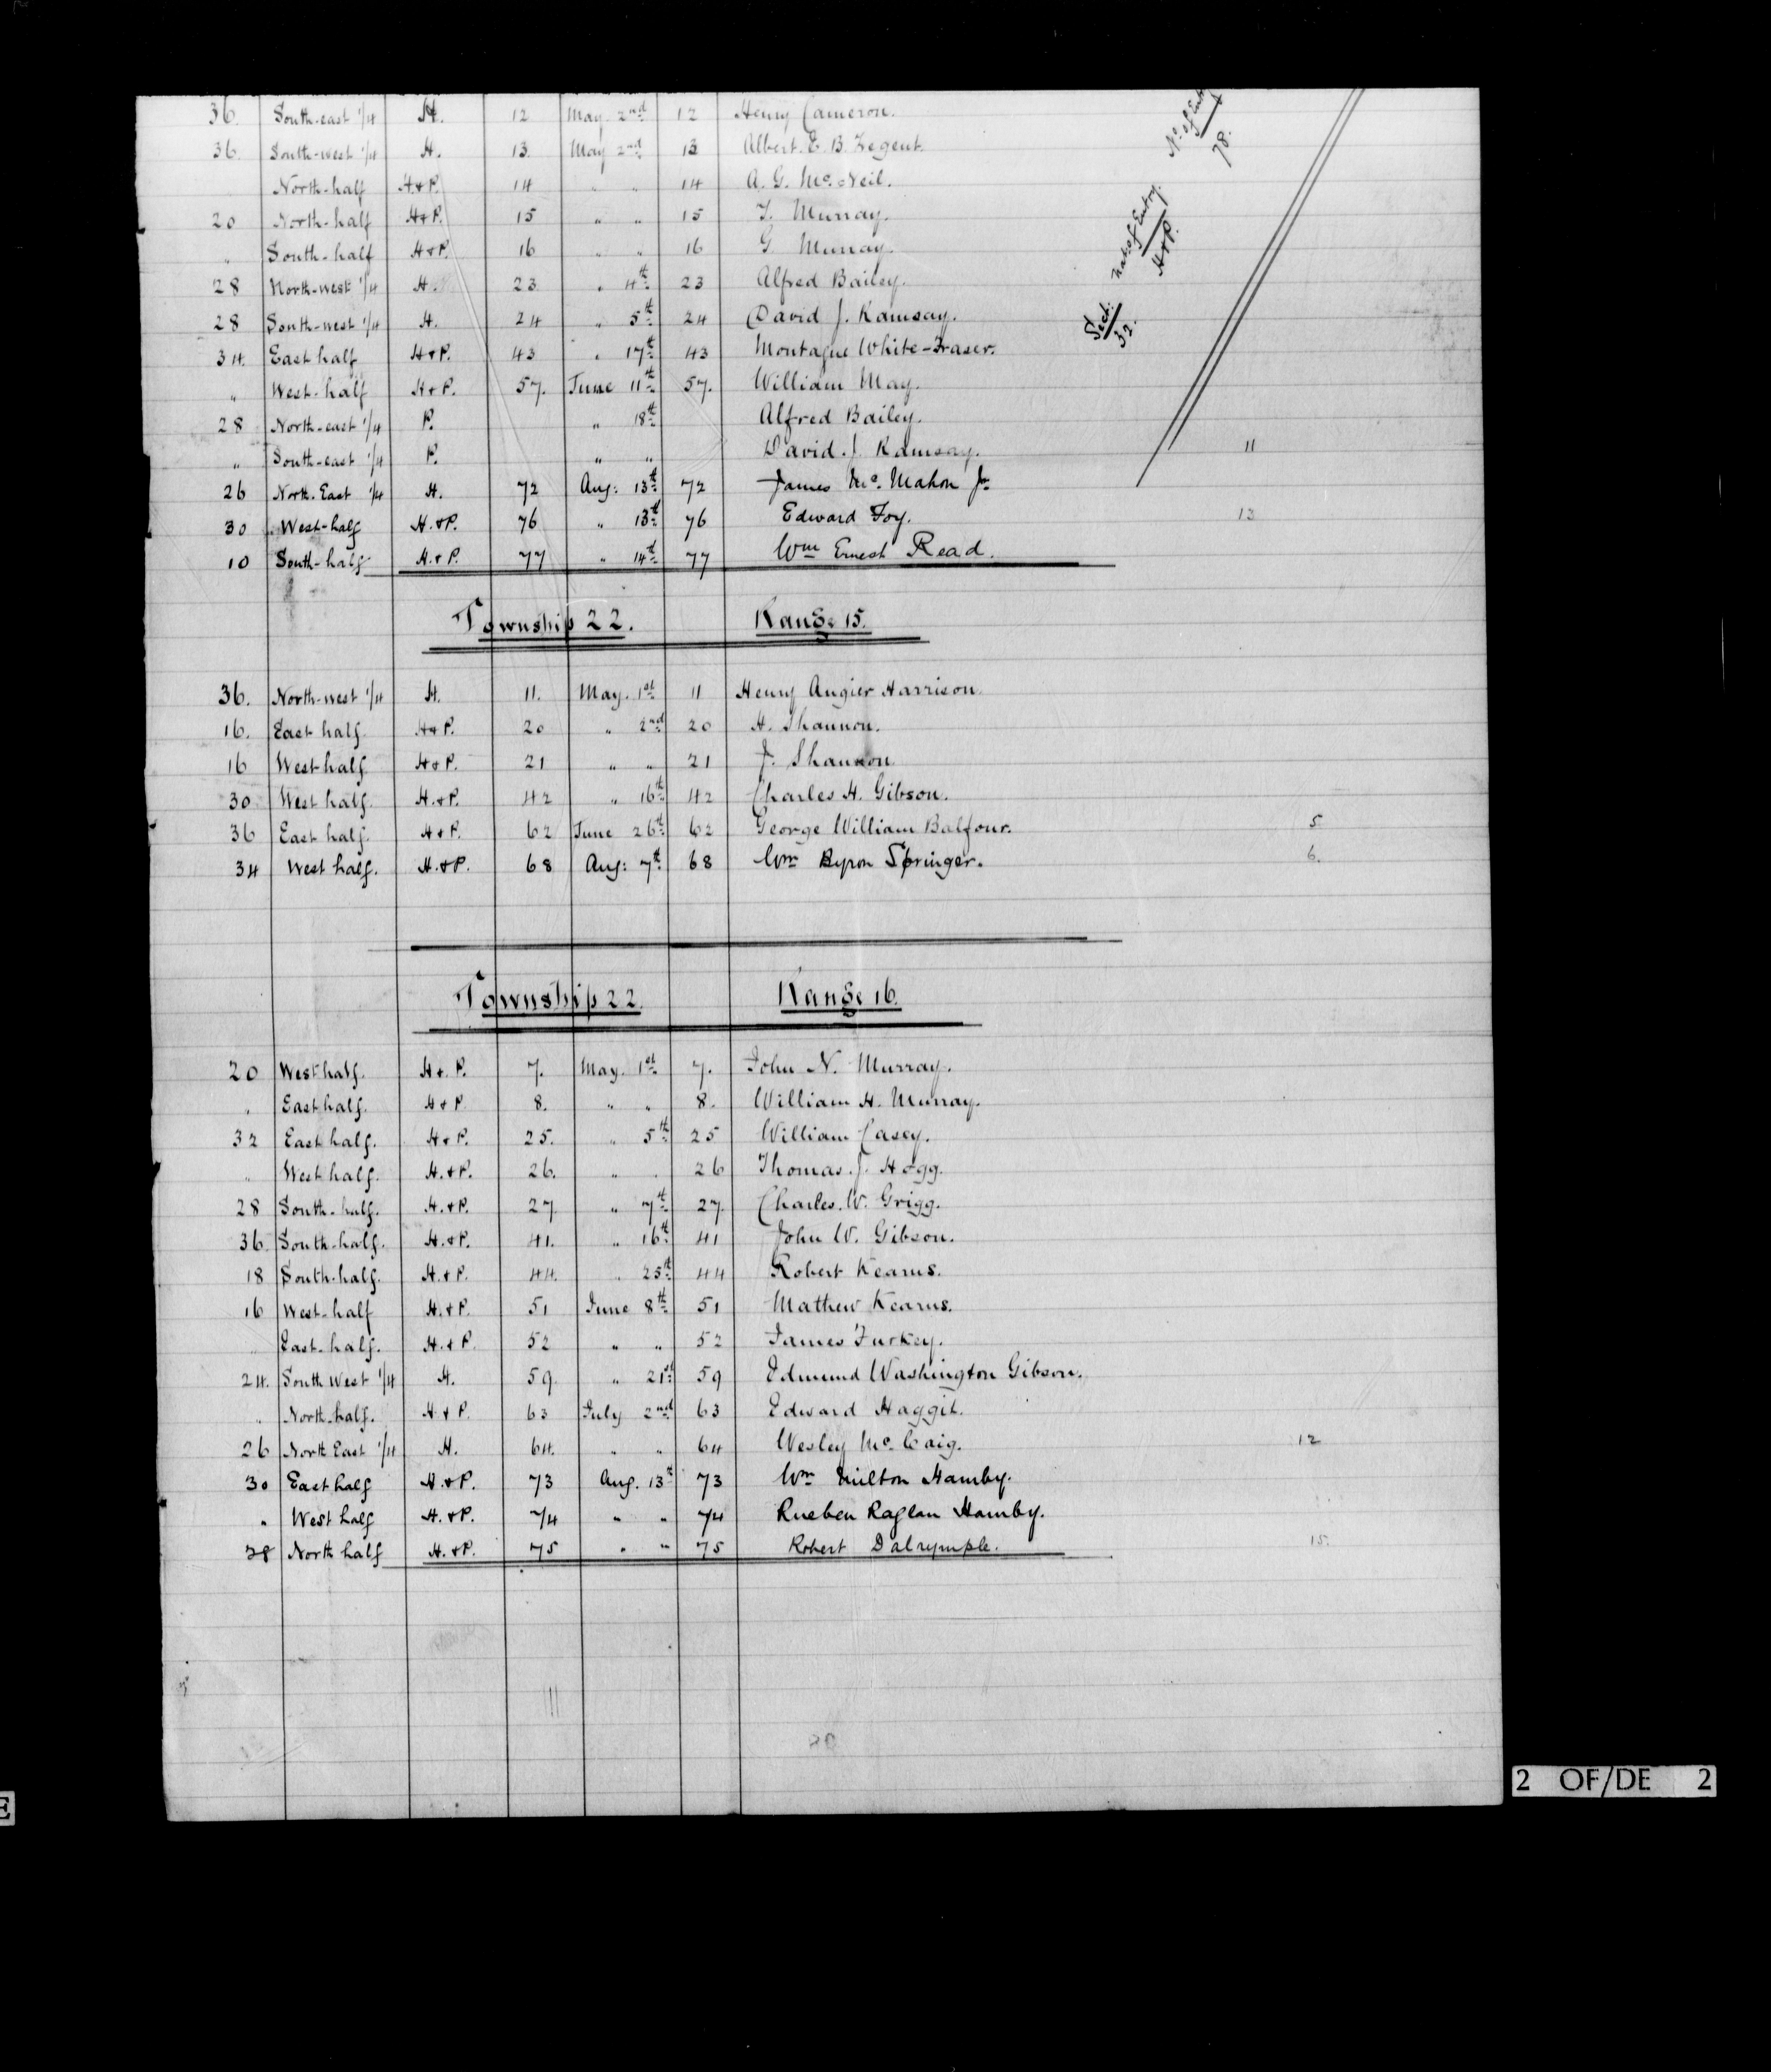 36. South-east 1/4 H. 12 May 2nd 12 Henry Cameron.
36. South-west 1/4 H. 13. May 2nd 13 Albert. E. B. Tegent.
North-half H.&P. 14 " " 14 A. G. Mc.Neil.
20 North-half H&P. 15 " " 15 T. Murray.
" South-half H&P. 16 " " 16 G Murray.
28 North-west 1/4 H. 23 " 4th 23 Alfred Bailey.
28 South-west 1/4 H. 24 " 5th 24 David J. Ramsay.
34. East half H&P. 43 " 17th 43 Montague White-Fraser.
" West-half H&P. 57. June 11th 57. William May.
28 North-east 1/4 P. " 18th Alfred Bailey.
" South-east 1/4 P. " " David. J. Ramsay. 11
26 North-East 1/4 H. 72 Aug: 13th 72 James Mc.Mahon Jr.
30 West-half H.&P. 76 " 13th 76 Edward Foy. 13
10 South-half H.&P. 77 " 14th 77 Wm Ernest Read.
No of Entry
78.
Nat. of Entry.
H&P.
Sect:
32.
Township 22. Range 15.
36. North-west 1/4 H. 11. May. 1st 11 Henry Angier Harrison.
16. East half. H&P. 20 " 2nd 20 H. Shannon.
16 West half. H&P. 21 " " 21 J. Shannon
30 West half. H.&P. 42 " 16th 42 Charles H. Gibson.
36 East half. H&P. 62 June 26th 62 George William Balfour. 5
34 West half. H.&P. 68 Aug: 7th 68 Wm Byron Springer. 6.
Township 22. Range 16.
20 West half. H&P. 7. May. 1st 7. John N. Murray.
" East half. H&P 8. " " 8. William H. Murray.
32 East half. H&P. 25. " 5th 25 William Casey.
" West half. H.&P. 26. " 26 Thomas. J. Hogg.
28 South-half. H.&P. 27 " 7th 27. Charles. W. Grigg.
36. South-half. H.&P. 41. " 16th 41 John W. Gibson.
18 South-half. H.&P. 44. " 25th 44 Robert Kearns.
16 West-half H.&P. 51 June 8th 51 Mathew Kearns.
" East-half. H.&P. 52 " " 52 James Furkey.
24. South West 1/4 H. 59. " 21st 59 Edmund Washington Gibson.
" North-half. H&P. 63 July 2nd 63 Edward Haggit.
26 North East 1/4 H. 64. " " 64 Wesley Mc.Caig. 12
30 East half H.&P. 73 Aug. 13th 73 Wm Milton Hamby.
" West half H.&P. 74 " " 74 Rueben Raglan Hamby.
28 North half H.&P. 75 " " 75 Robert Dalrymple. 15.
2 OF/DE 2